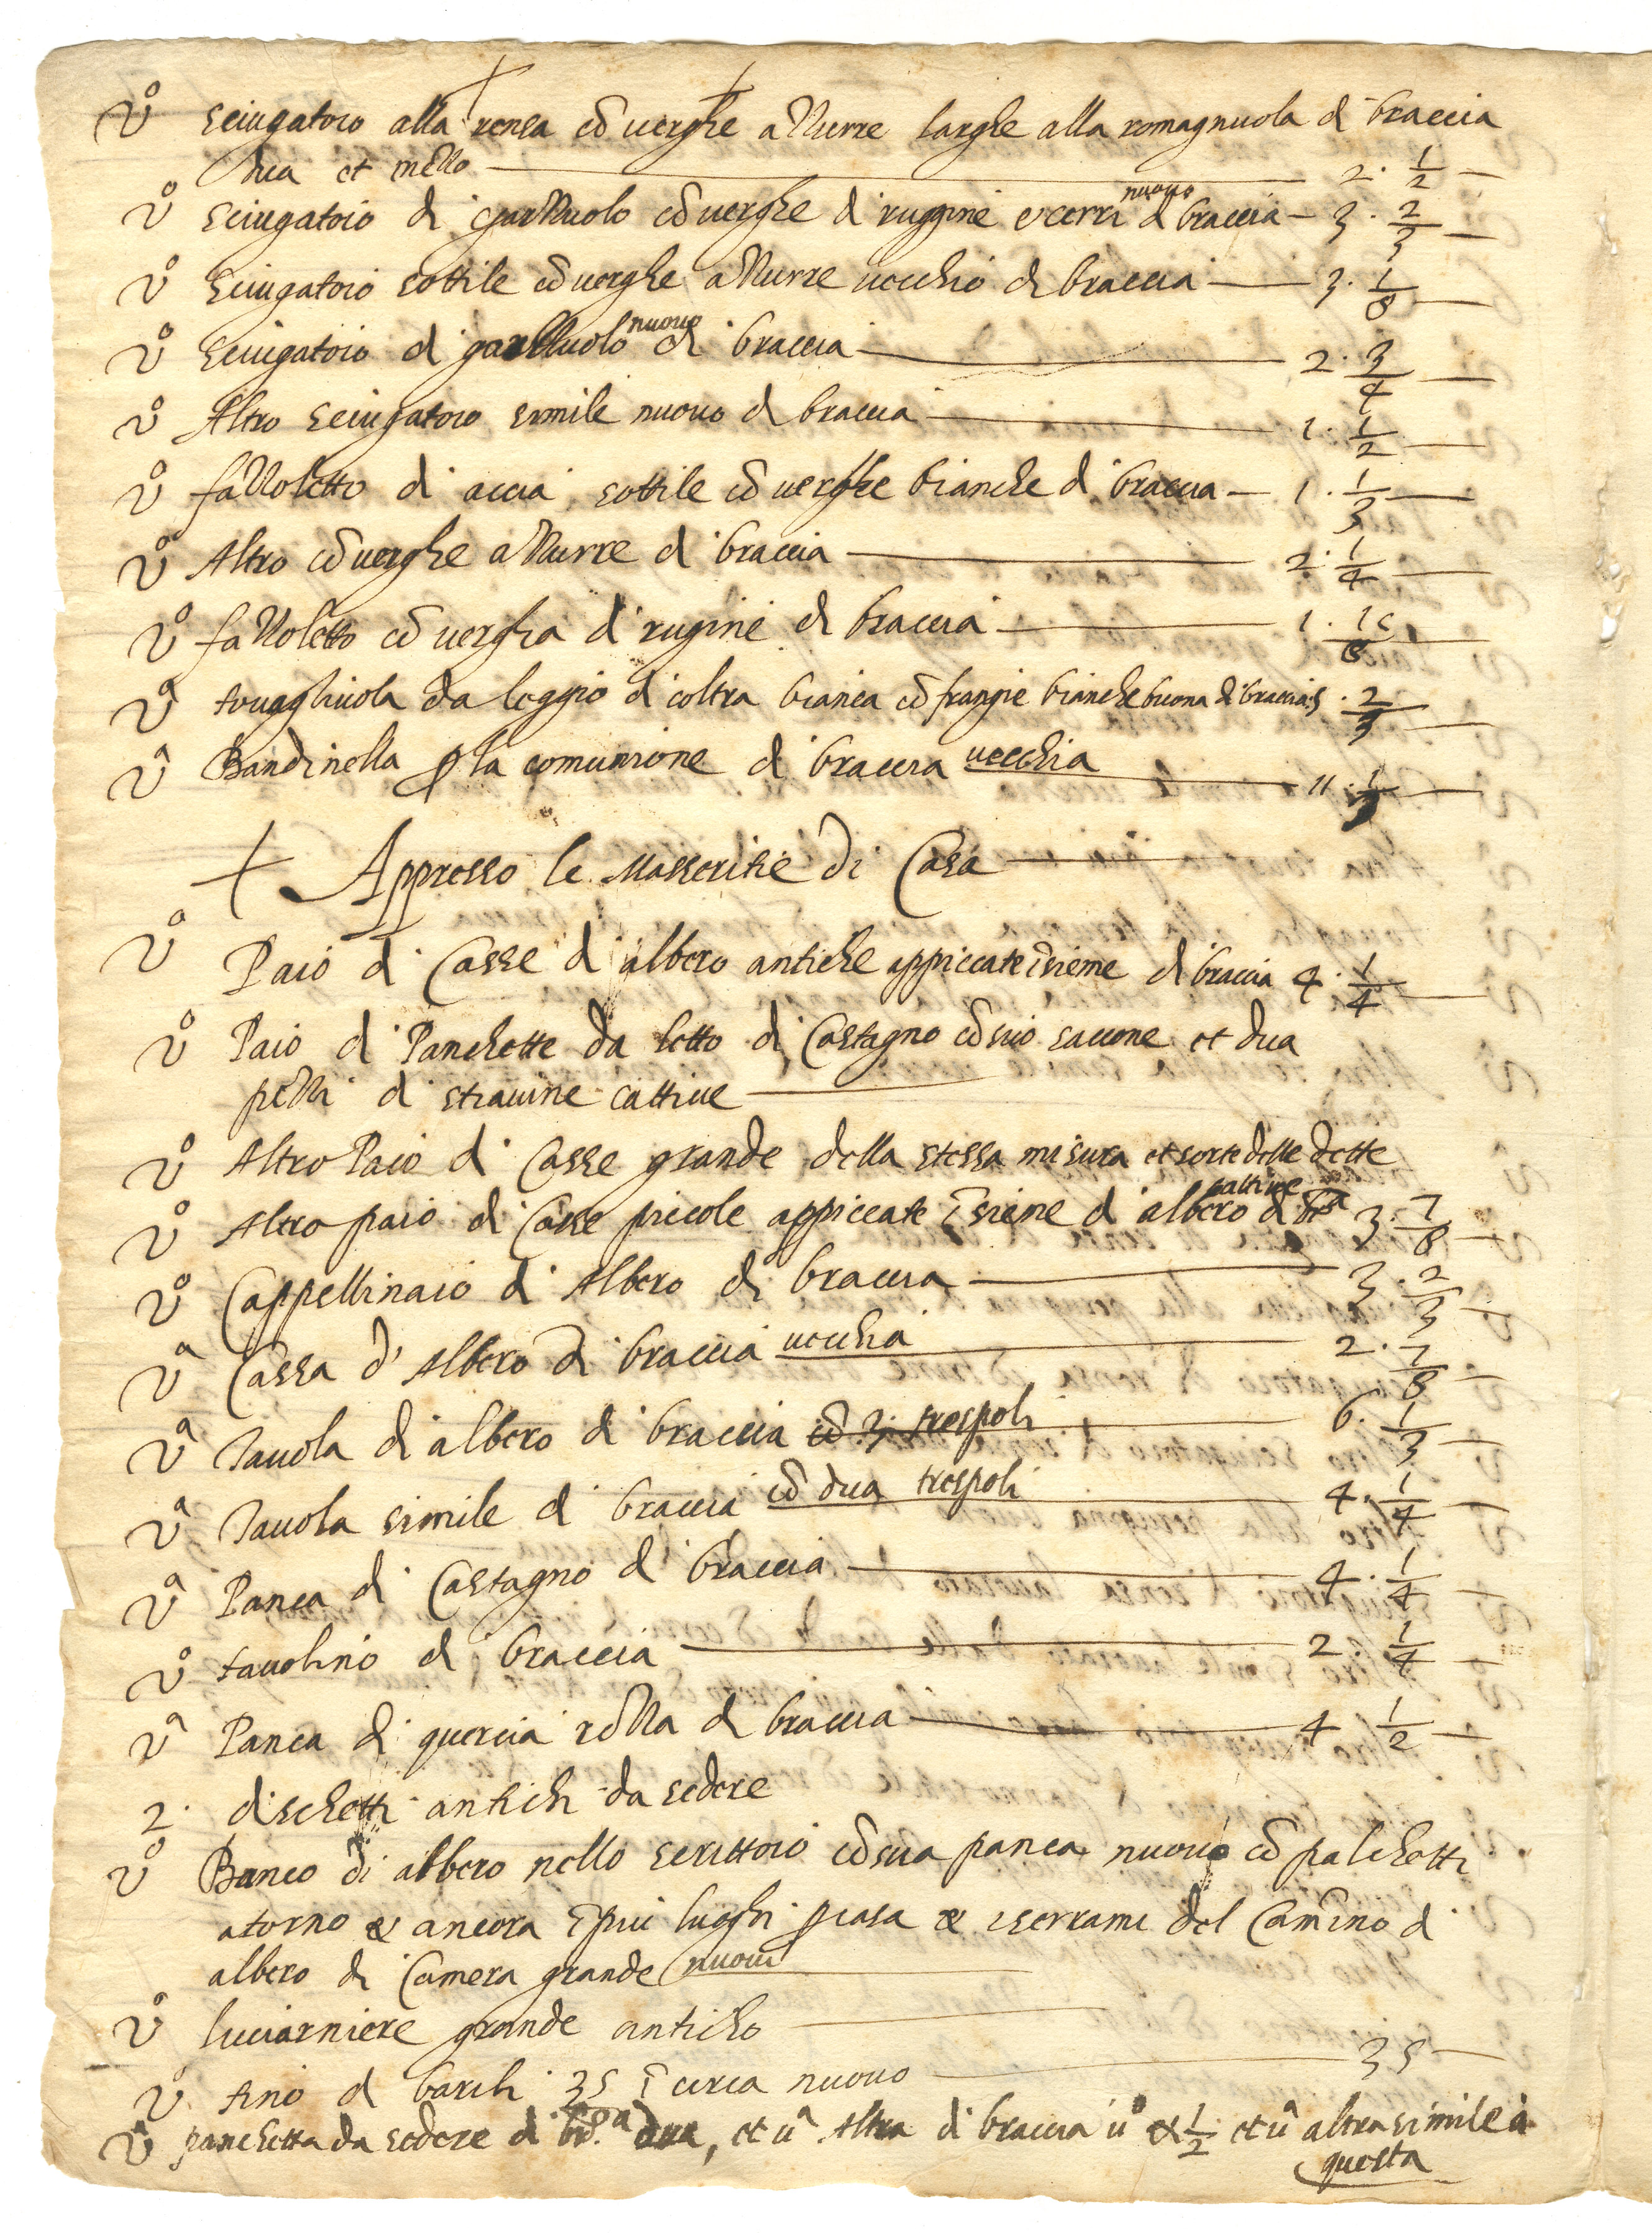 Vº sciugatoio alla rensa cō uerghe azzurre larghe alla romagnuola di braccia
dua et mezzo — 2. 1/2 —
Vº sciugatoio di garzzuolo cō uerghe di ruggine e cerri nuouo di braccia — 3. 2/3 —
Vº sciugatoio sottile cō uerghe azzurre uecchio di braccia — 3. 1/8 —
Vº sciugatoio di garzzuolo nuouo di braccia — 2. 3/4 —
Vº Altro sciugatoio simile nuouo di braccia — 1. 1/2 —
Vº fazzoletto di accia sottile cō uerghe bianche di braccia — 1. 1/3 —
Vº Altro cō uerghe azzurre di braccia — 2. 1/4 —
Vº fazzoletto cō uergha di rugine di braccia — 1.
Vª touagliuola da leggio di coltra bianca cō frangie bianche buona di braccia 5. 2/3 —
Vª Bandinella ꝑ la comunione di braccia uecchia — 11. 1/3 —
+ Appresso le Masseritie di Casa —
Vº Paio di Casse di albero antiche appiccate īsieme di braccia 4. 1/4 —
Vº Paio di Panchette da letto di Castagno cō suo saccone et dua
pezzi di strauine cattiue —
Vº Altro Paio di Casse grande della stessa misura et sorte delle dette
Vº Altro paio di Casse piccole appiccate īsieme di albero cattiue di br.ª 3. 7/8 —
Vº Cappellinaio di Albero di braccia — 3. 2/3 —
Vª Cassa d' Albero di braccia uecchia — 2. 7/8 —
Vª Tauola di albero di braccia cō 3. trespoli — 6. 1/3 —
Vª Tauola simile di braccia cō dua trespoli — 4. 1/4 —
Vª Panca di Castagno di braccia — 4. 1/4 —
Vº tauolino di braccia — 2. 1/4 —
Vª Panca di quercia rozza di braccia — 4 1/2 —
2. dischetti antichi da sedere
Vº Banco di albero nello scrittoio cō sua panca nuouo cō palchetti
atorno & ancora ī piu luoghi ꝑ casa & i serrami del Camino di
albero di Camera grande nuoui
Vº lucarniere grande anticho —
Vº tino di barili 35 ī circa nuouo — 35 —
Vª panchetta da sedere di br.ª dua, et uª Altra di braccia uº & 1/2 et uª altra simile à
questa